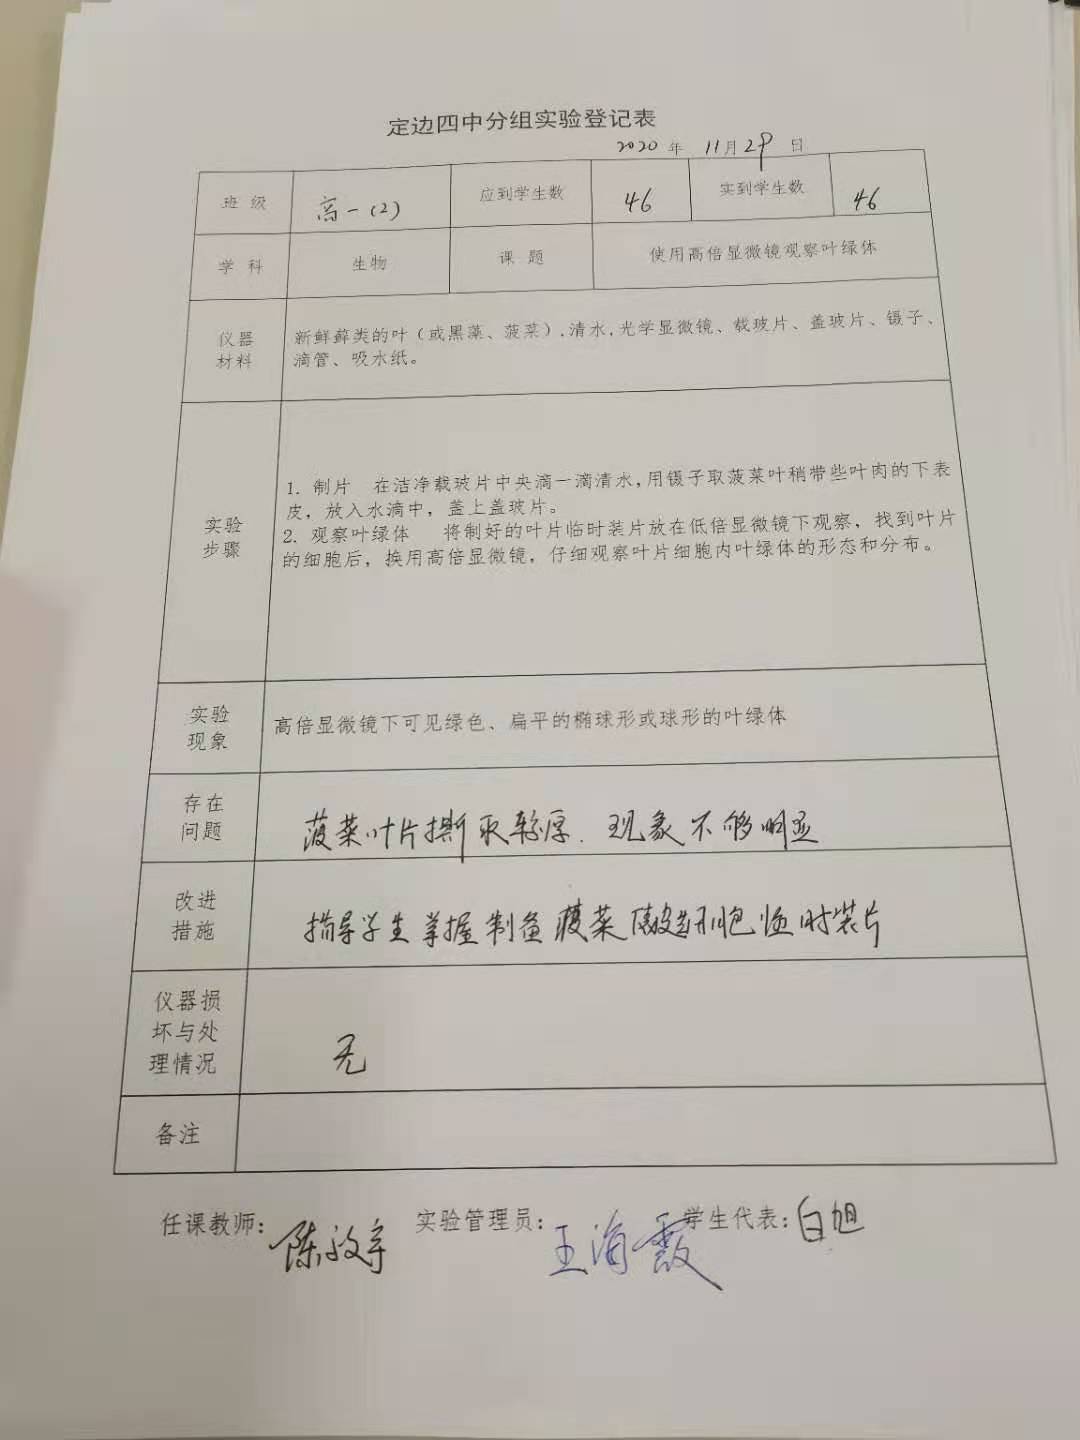 定边四中分组实验登记表
2020 年 11月29日
班 级 高一(2) 应到学生数 46 实到学生数 46
学 科 生物 课 题 使用高倍显微镜观察叶绿体
仪器
材料
新鲜藓类的叶（或黑藻、菠菜）,清水,光学显微镜、载玻片、盖玻片、镊子、
滴管、吸水纸。
实验
步骤
1. 制片 在洁净载玻片中央滴一滴清水,用镊子取菠菜叶稍带些叶肉的下表
皮，放入水滴中，盖上盖玻片。
2. 观察叶绿体 将制好的叶片临时装片放在低倍显微镜下观察，找到叶片
的细胞后，换用高倍显微镜，仔细观察叶片细胞内叶绿体的形态和分布。
实验
现象
高倍显微镜下可见绿色、扁平的椭球形或球形的叶绿体
存在
问题
菠菜叶片撕取较厚. 现象不够明显
改进
措施
指导学生掌握制备菠菜下表皮细胞临时装片
仪器损
坏与处
理情况
无
备注
任课教师: 陈 实验管理员: 王海霞 学生代表: 白旭